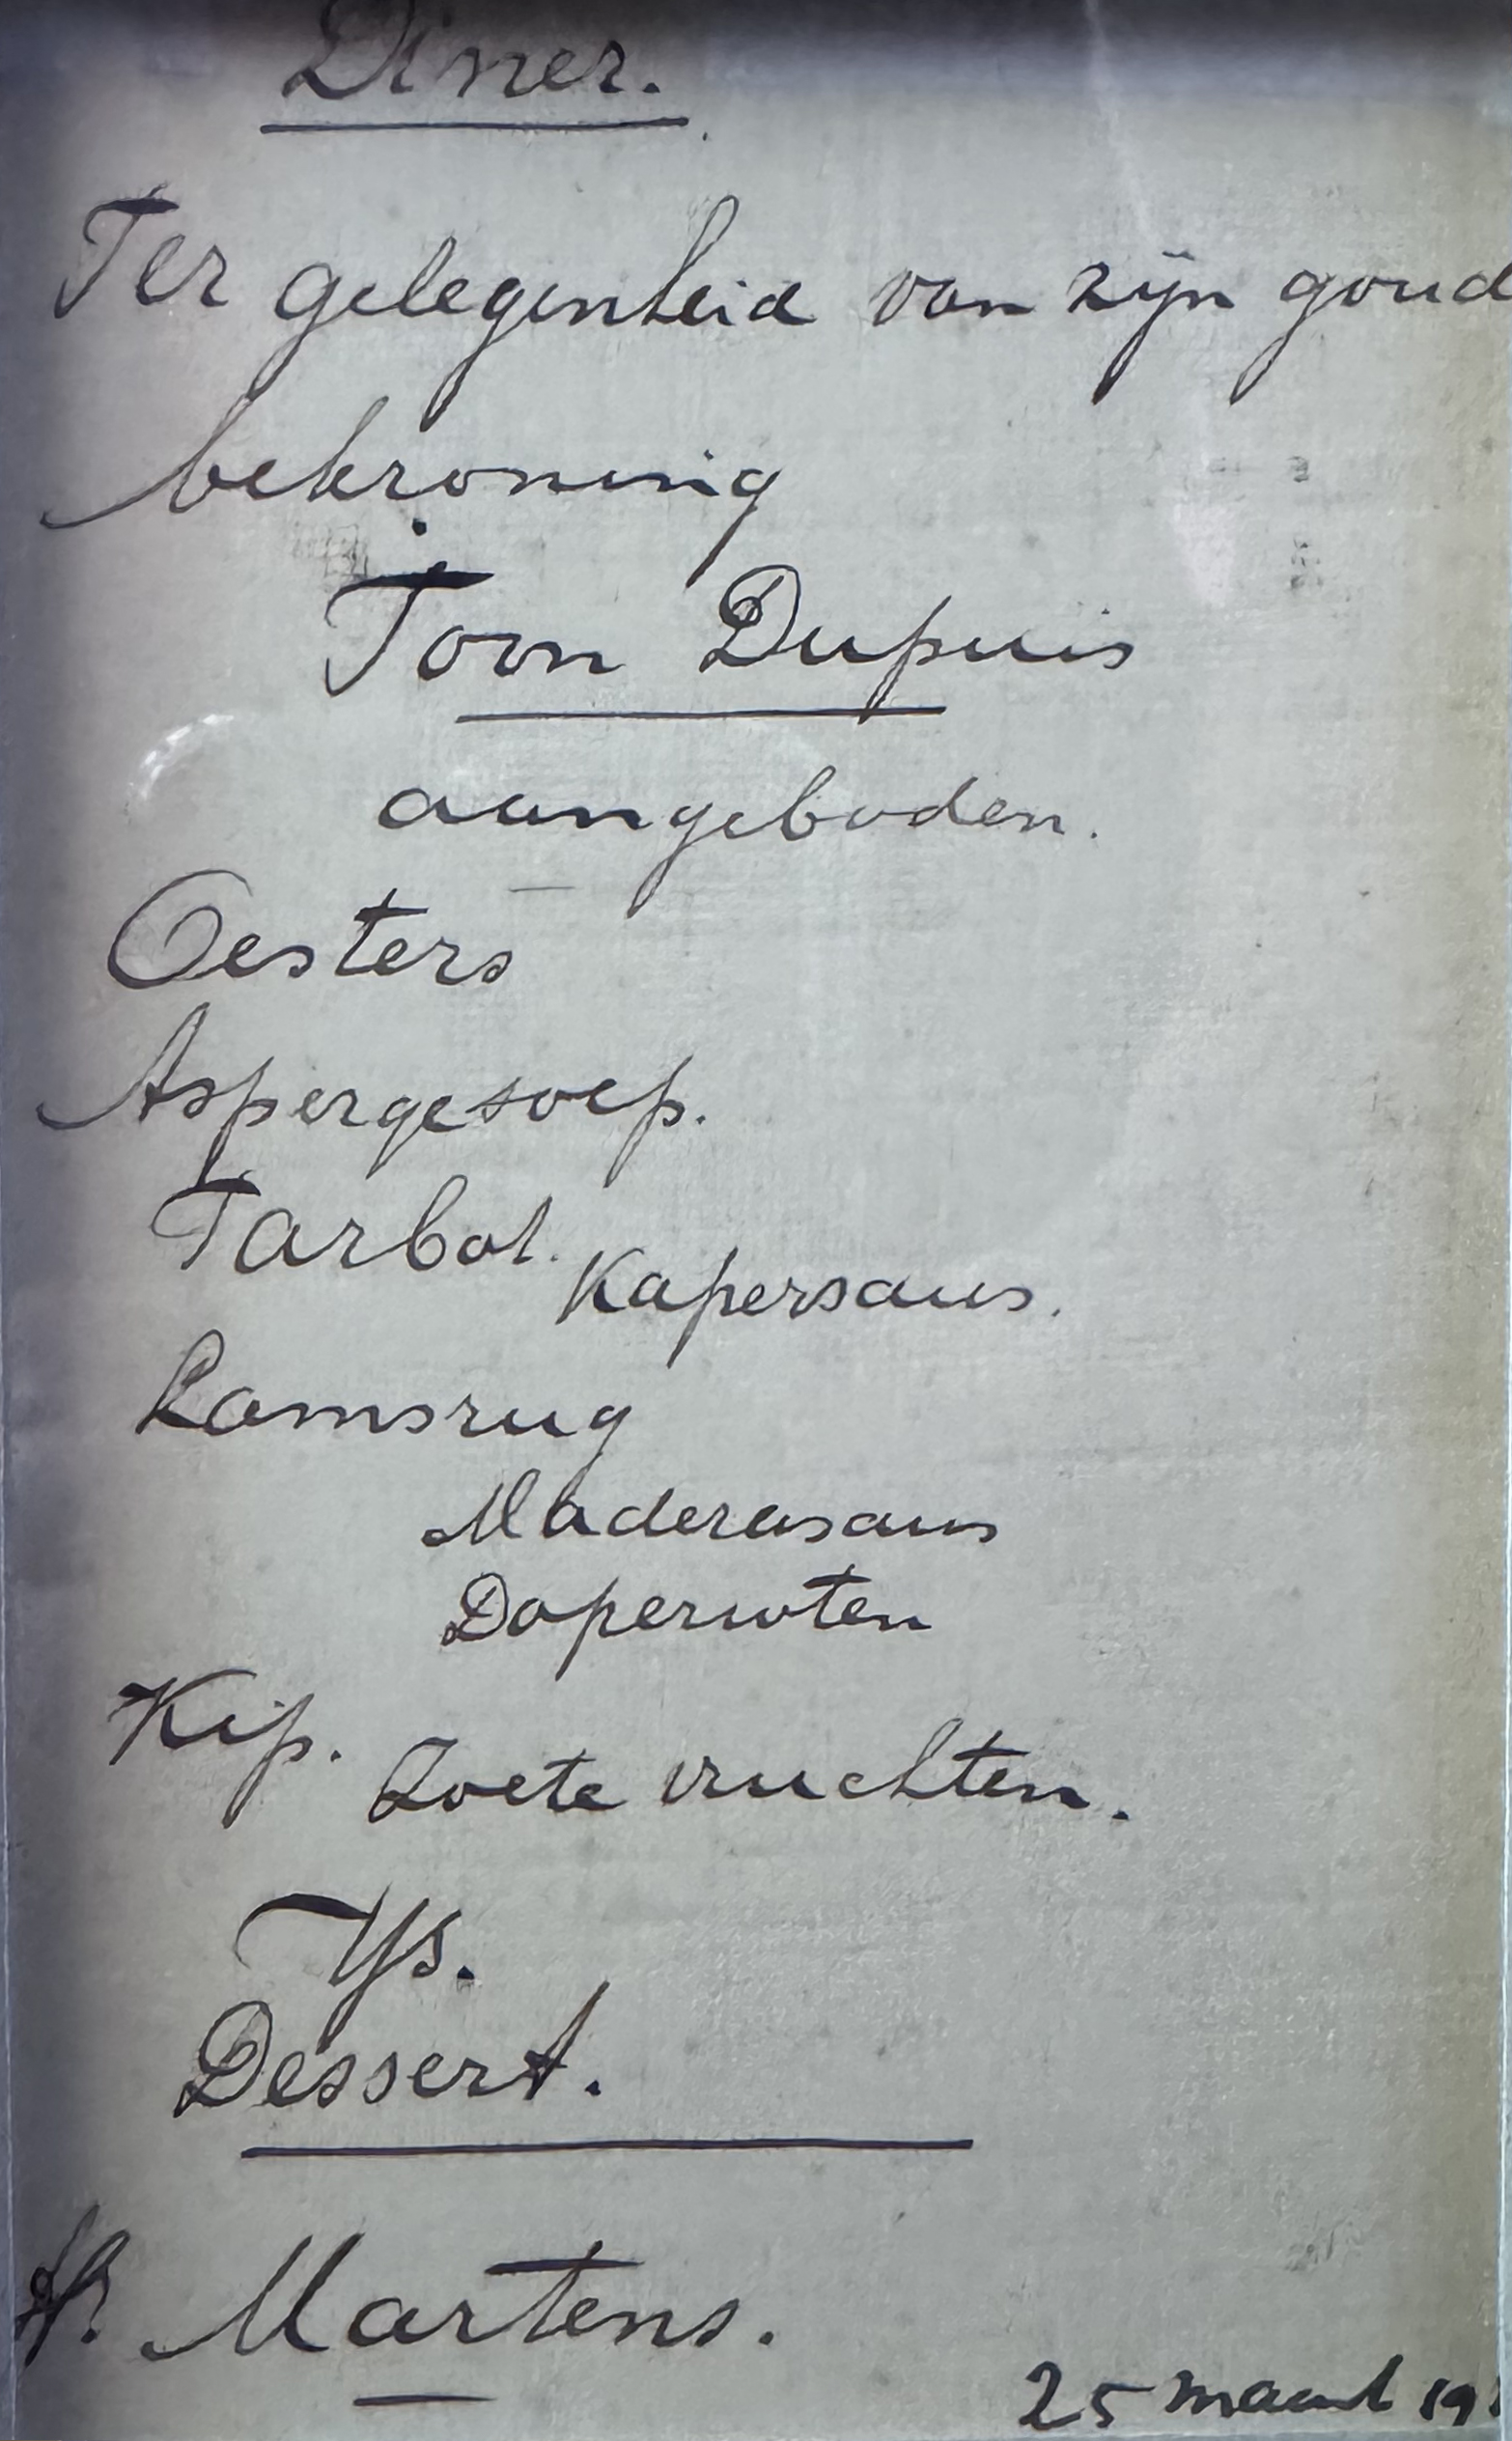 Diner.
Ter gelegenheid van zijn goud
bekroning
Toon Dupuis
aangeboden.
Oesters
Aspergesoep.
Tarbot.
Kapersaus.
Lamsrug
Maderasaus
Doperwten
Kip.
Zoete vruchten.
Ys.
Dessert.
Martens.
25 maart 19